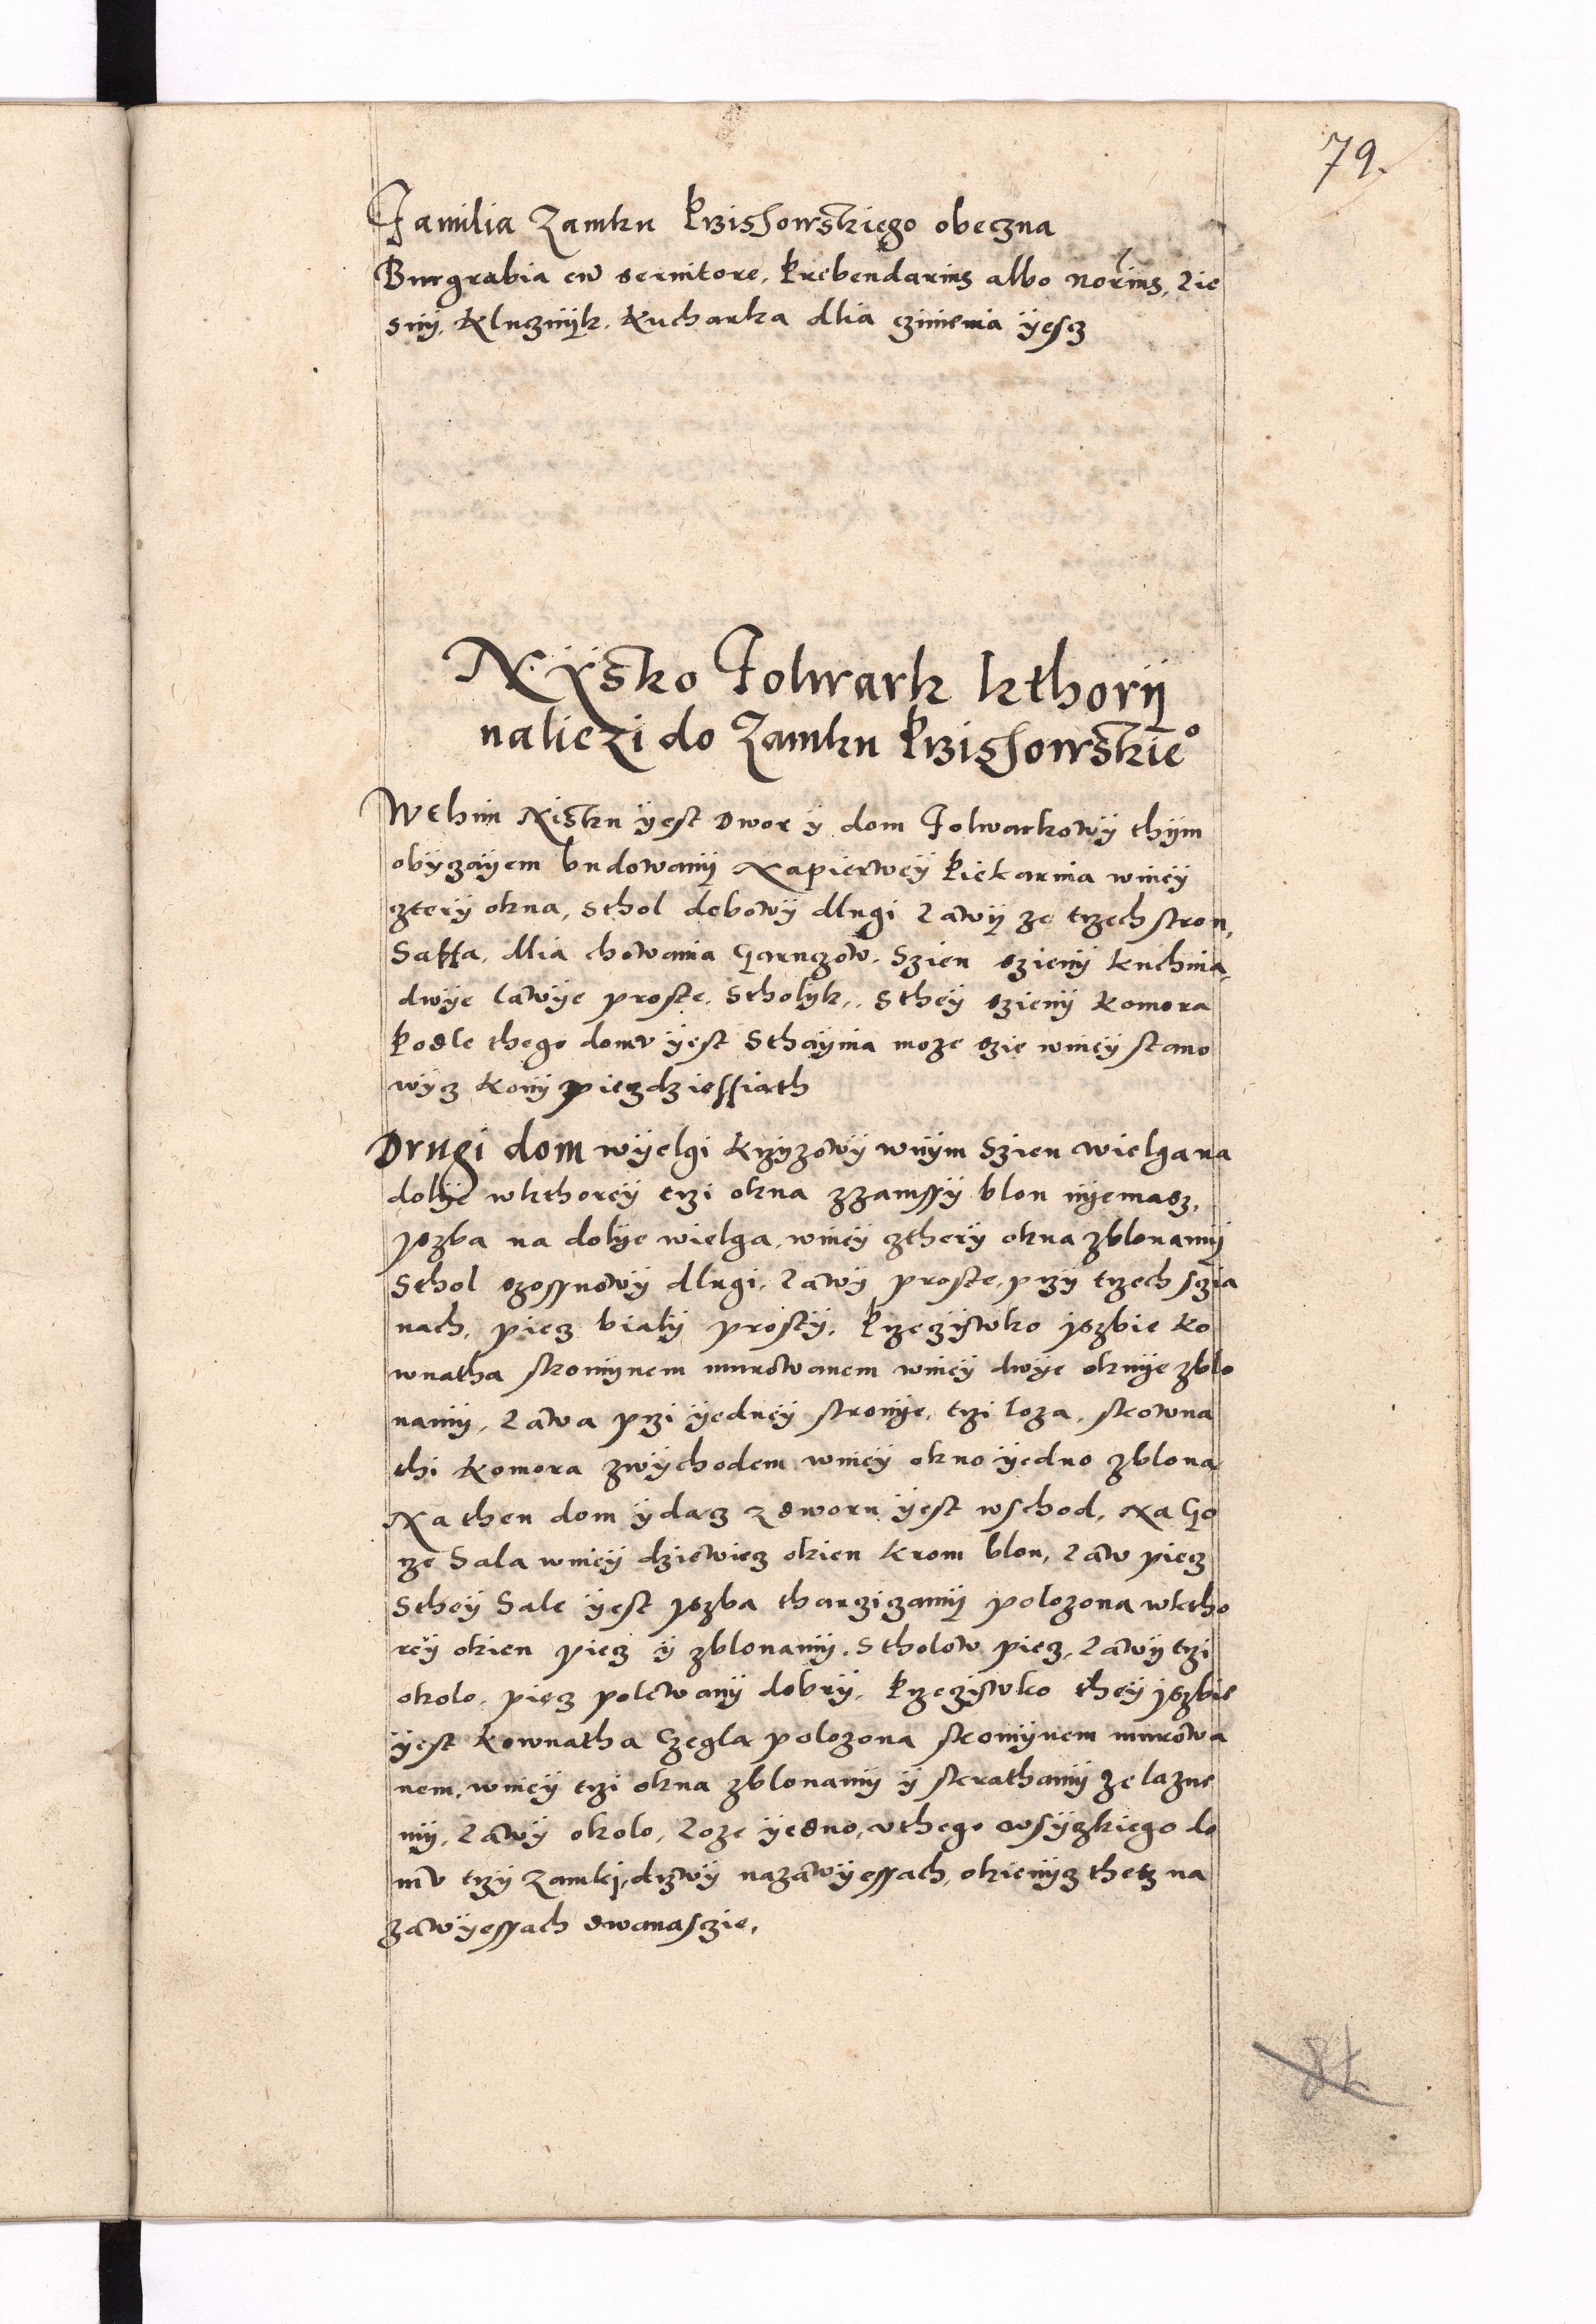 79.
Familia Zamku Krzishowskiego obeczna
Burgrabia cu servitore, Prebendarius albo Norius, Lie
sny, Kluznÿk, Kucharka dlia czinienia ÿesz
Nÿsko Folwark kthorÿ
naliezi do Zamku Krzishowskie°
Wthim Nisku ÿest Dwor ÿ dom Folwarkowÿ thÿm
obÿzaÿem budowanÿ Napierweÿ Piekarnia wnieÿ
czterÿ okna, sthol debowÿ dlugi Lawÿ ze trzech stron,
Saffa, dlia chowania Garnczow. Szien szienÿ kuchnia,
dwÿe lawÿe proste, stholÿk, stheÿ szienÿ komora
Podle thego domv ÿest Sthaÿnia moze szie wnieÿ stano
wÿcz konÿ pieczdziessiath
Drugi dom wÿelgi krzÿzowÿ wnÿm Szien wielga na
dolÿe wkthoreÿ trzi okna zzamssÿ blon nÿemasz,
Jszba na dolÿe wielga, wnieÿ cztherÿ okna zblonamÿ
Sthol szossnowÿ dlugi, Lawÿ proste, przÿ trzech sczia
nach, piecz bialÿ prostÿ, Przeczÿwko jszbie ko
wnatha skomÿnem murowanem wnieÿ dwÿe oknÿe zblo
namÿ, Lawa przi ÿedneÿ stronÿe, trzi loza, skowna
thi komora zwÿchodem wnieÿ okno ÿedno zblona
Na then dom ÿdacz zdworu ÿest wschod, Na Go
rze Sala wnieÿ dziewiecz okien krom blon, Law piecz
Stheÿ Sale ÿest Jszba tharcziczamÿ polozona wktho
reÿ okien piecz ÿ zblonamÿ, Stholow piecz, Lawÿ trzi
okolo, piecz polewanÿ dobrÿ, Przeczÿwko theÿ jszbie
ÿest kownatha Czegla polozona skomÿnem murowa
nem, wnieÿ trzi okna zblonamÿ ÿ skrathamÿ zelazne
mÿ, Lawÿ okolo, Loze ÿedno, vthego wsÿzkiego do
mv trzÿ zamki, drzwÿ nazawÿessach, okienÿcz thetz na
zawÿessach dwanasczie.